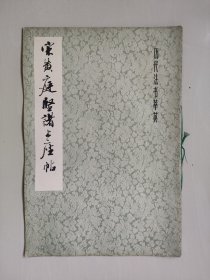 宋黄庭坚诸上座帖
历代法书萃英